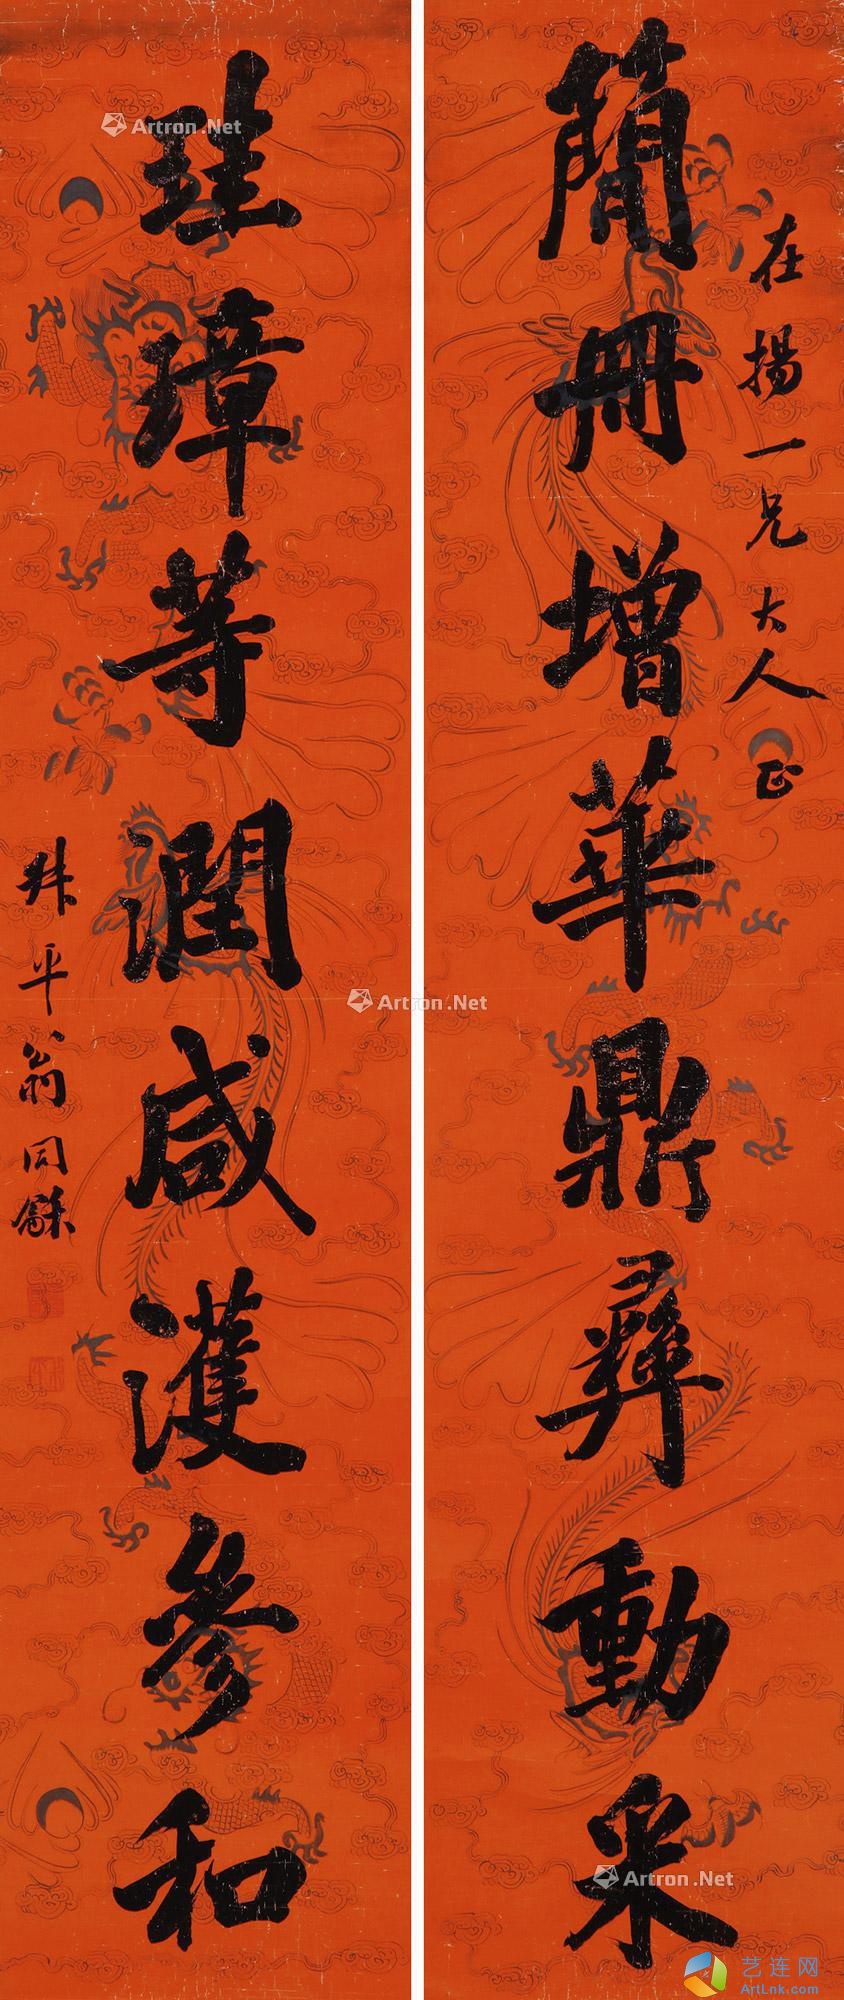 簡冊增華鼎彝動采
在揚一兄大人正
珪璋等潤咸濩參和
叔平翁同龢
Artron.Net
Artron.Net
Artron.Net
艺连网
ArtLnk.com